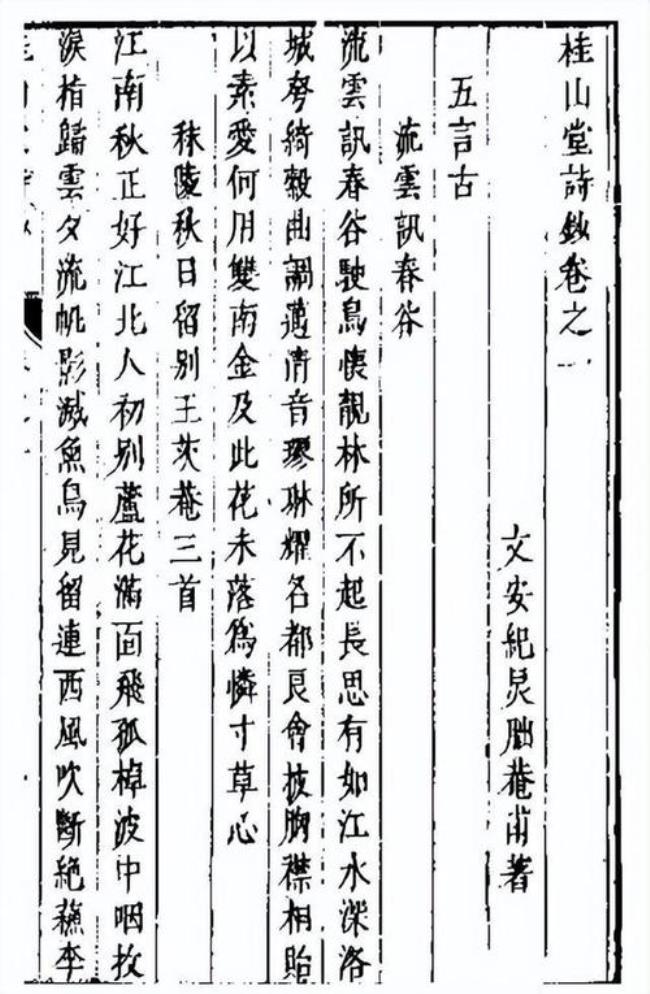 桂山堂詩鈔卷之一
文安紀炅朏菴甫著
五言古
流雲訊春谷
流雲訊春谷駛鳥懷靚林所不起長思有如江水深洛
城弩綺縠曲調邁清音璆琳耀名都良會披胸襟相貽
以素愛何用雙南金及此花未落爲憐寸草心
秣陵秋日留别王茨菴三首
江南秋正好江北人初别蘆花滿面飛孤棹波中咽抆
淚指歸雲夕流帆影滅魚鳥見留連西風吹斷絶蘓李